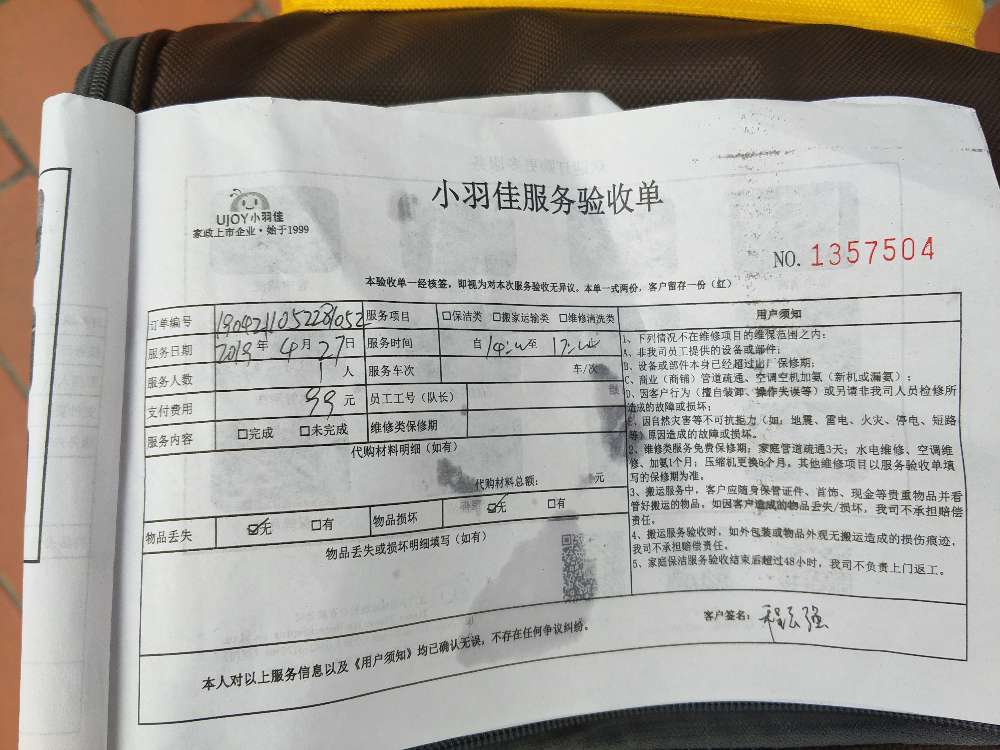 小羽佳服务验收单
UJOY小羽佳
家政上市企业·始于1999
NO. 1357504
本验收单一经核签，即视为对本次服务验收无异议，本单一式两份，客户留存一份（红）
订单编号 服务项目 □保洁类 □搬家运输类 □维修清洗类
服务日期 2019年4月27日 服务时间 自 至
服务人数 1人 服务车次 车/次
支付费用 99元 员工工号（队长）
服务内容 □完成 □未完成 维修类保修期
代购材料明细（如有）
代购材料总额： 元
物品丢失 ☑无 □有 物品损坏 ☑无 □有
物品丢失或损坏明细填写（如有）
用户须知
1、下列情况不在维修项目的维保范围之内：
A、非我司员工提供的设备或部件；
B、设备或部件本身已经超过出厂保修期；
C、商业（商铺）管道疏通、空调空机加氨（新机或漏氨）；
D、因客户行为（擅自装卸、操作失误等）或另请非我司人员检修所
造成的故障或损坏；
E、因自然灾害等不可抗拒力（如：地震、雷电、火灾、停电、短路
等）原因造成的故障或损坏。
2、维修类服务免费保修期：家庭管道疏通3天；水电维修、空调维
修、加氨1个月；压缩机更换6个月，其他维修项目以服务验收单填
写的保修期为准。
3、搬运服务中，客户应随身保管证件、首饰、现金等贵重物品并看
管好搬运的物品，如因客户造成的物品丢失/损坏，我司不承担赔偿
责任。
4、搬运服务验收时，如外包装或物品外观无搬运造成的损伤痕迹，
我司不承担赔偿责任。
5、家庭保洁服务验收结束后超过48小时，我司不负责上门返工。
客户签名：
本人对以上服务信息以及《用户须知》均已确认无误，不存在任何争议纠纷。